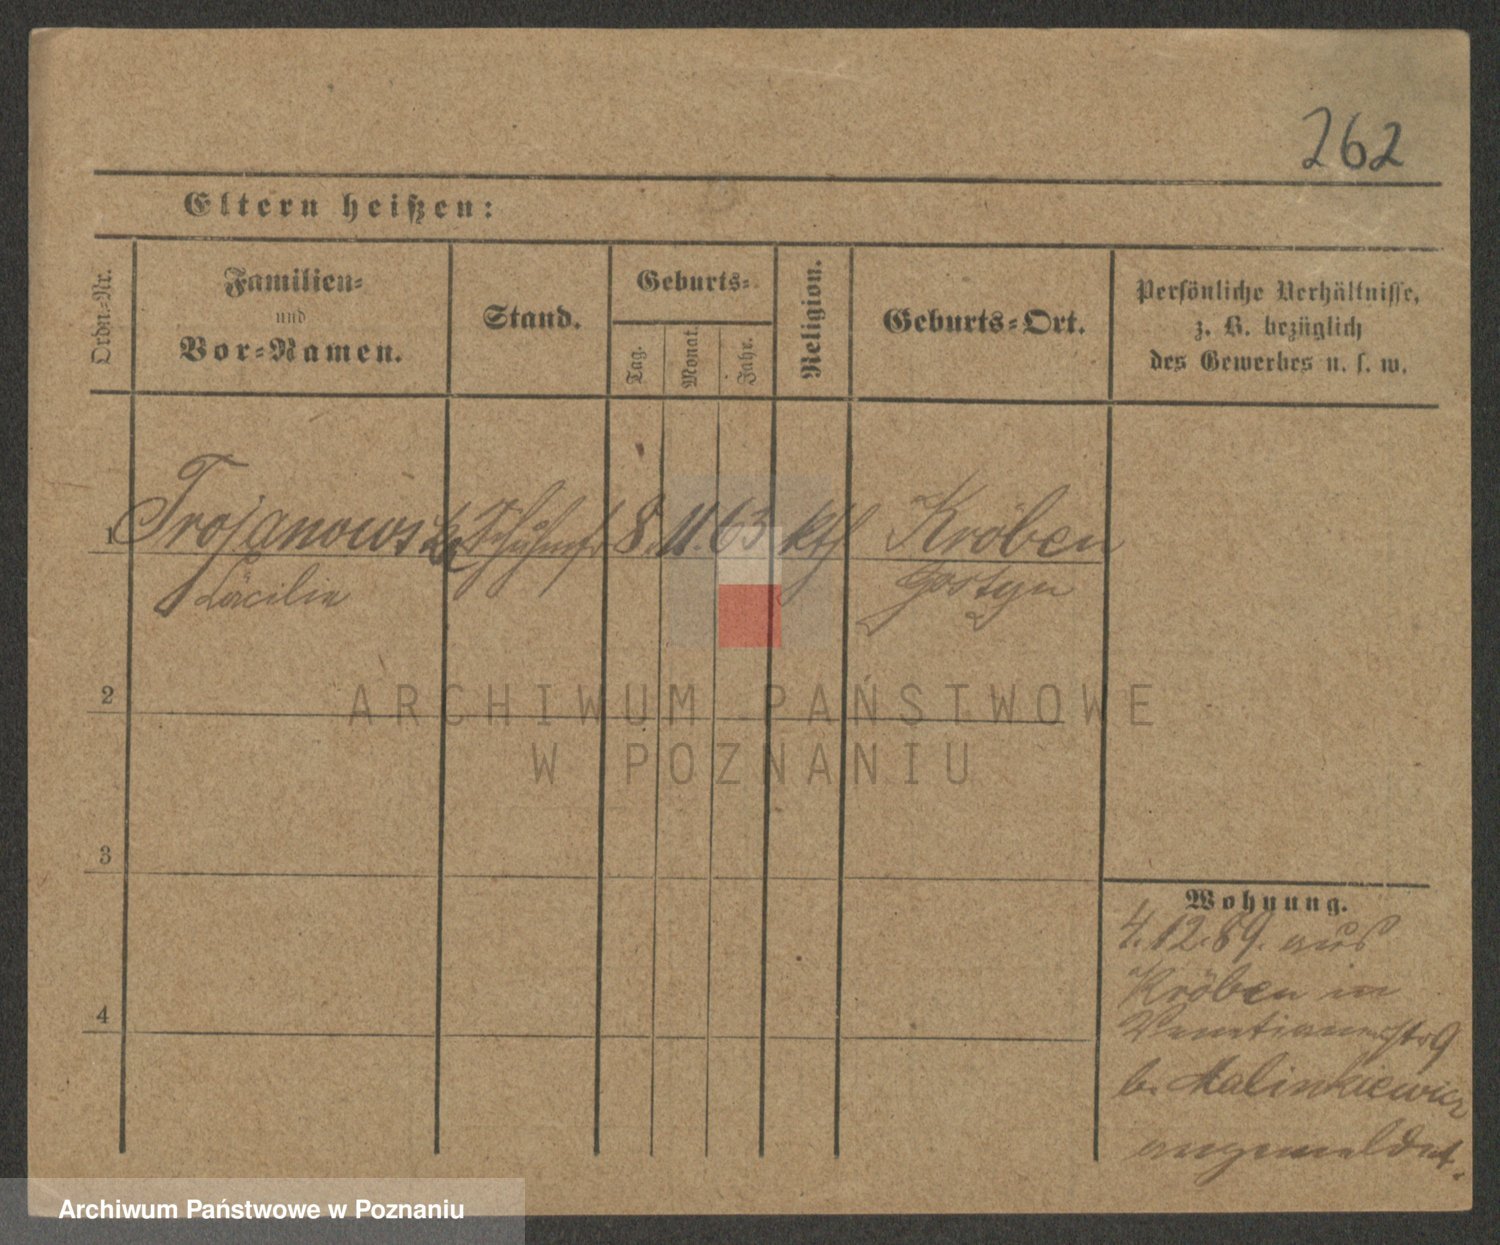 262
Eltern heißen:
Ordn.-Nr.
Familien-
und
Vor-Namen.
Stand.
Geburts-
Tag.
Monat.
Jahr.
Religion.
Geburts-Ort.
Persönliche Verhältnisse,
z. B. bezüglich
des Gewerbes u. s. w.
1 Trojanowska 8. 11. 63 kth Kröben
Cäcilie Gostyn
2
ARCHIWUM PAŃSTWOWE
W POZNANIU
3
Wohnung.
4. 12. 89. aus
Kröben in
Venetianerstr 9
b. Malinkiewicz
angemeldet.
4
Archiwum Państwowe w Poznaniu